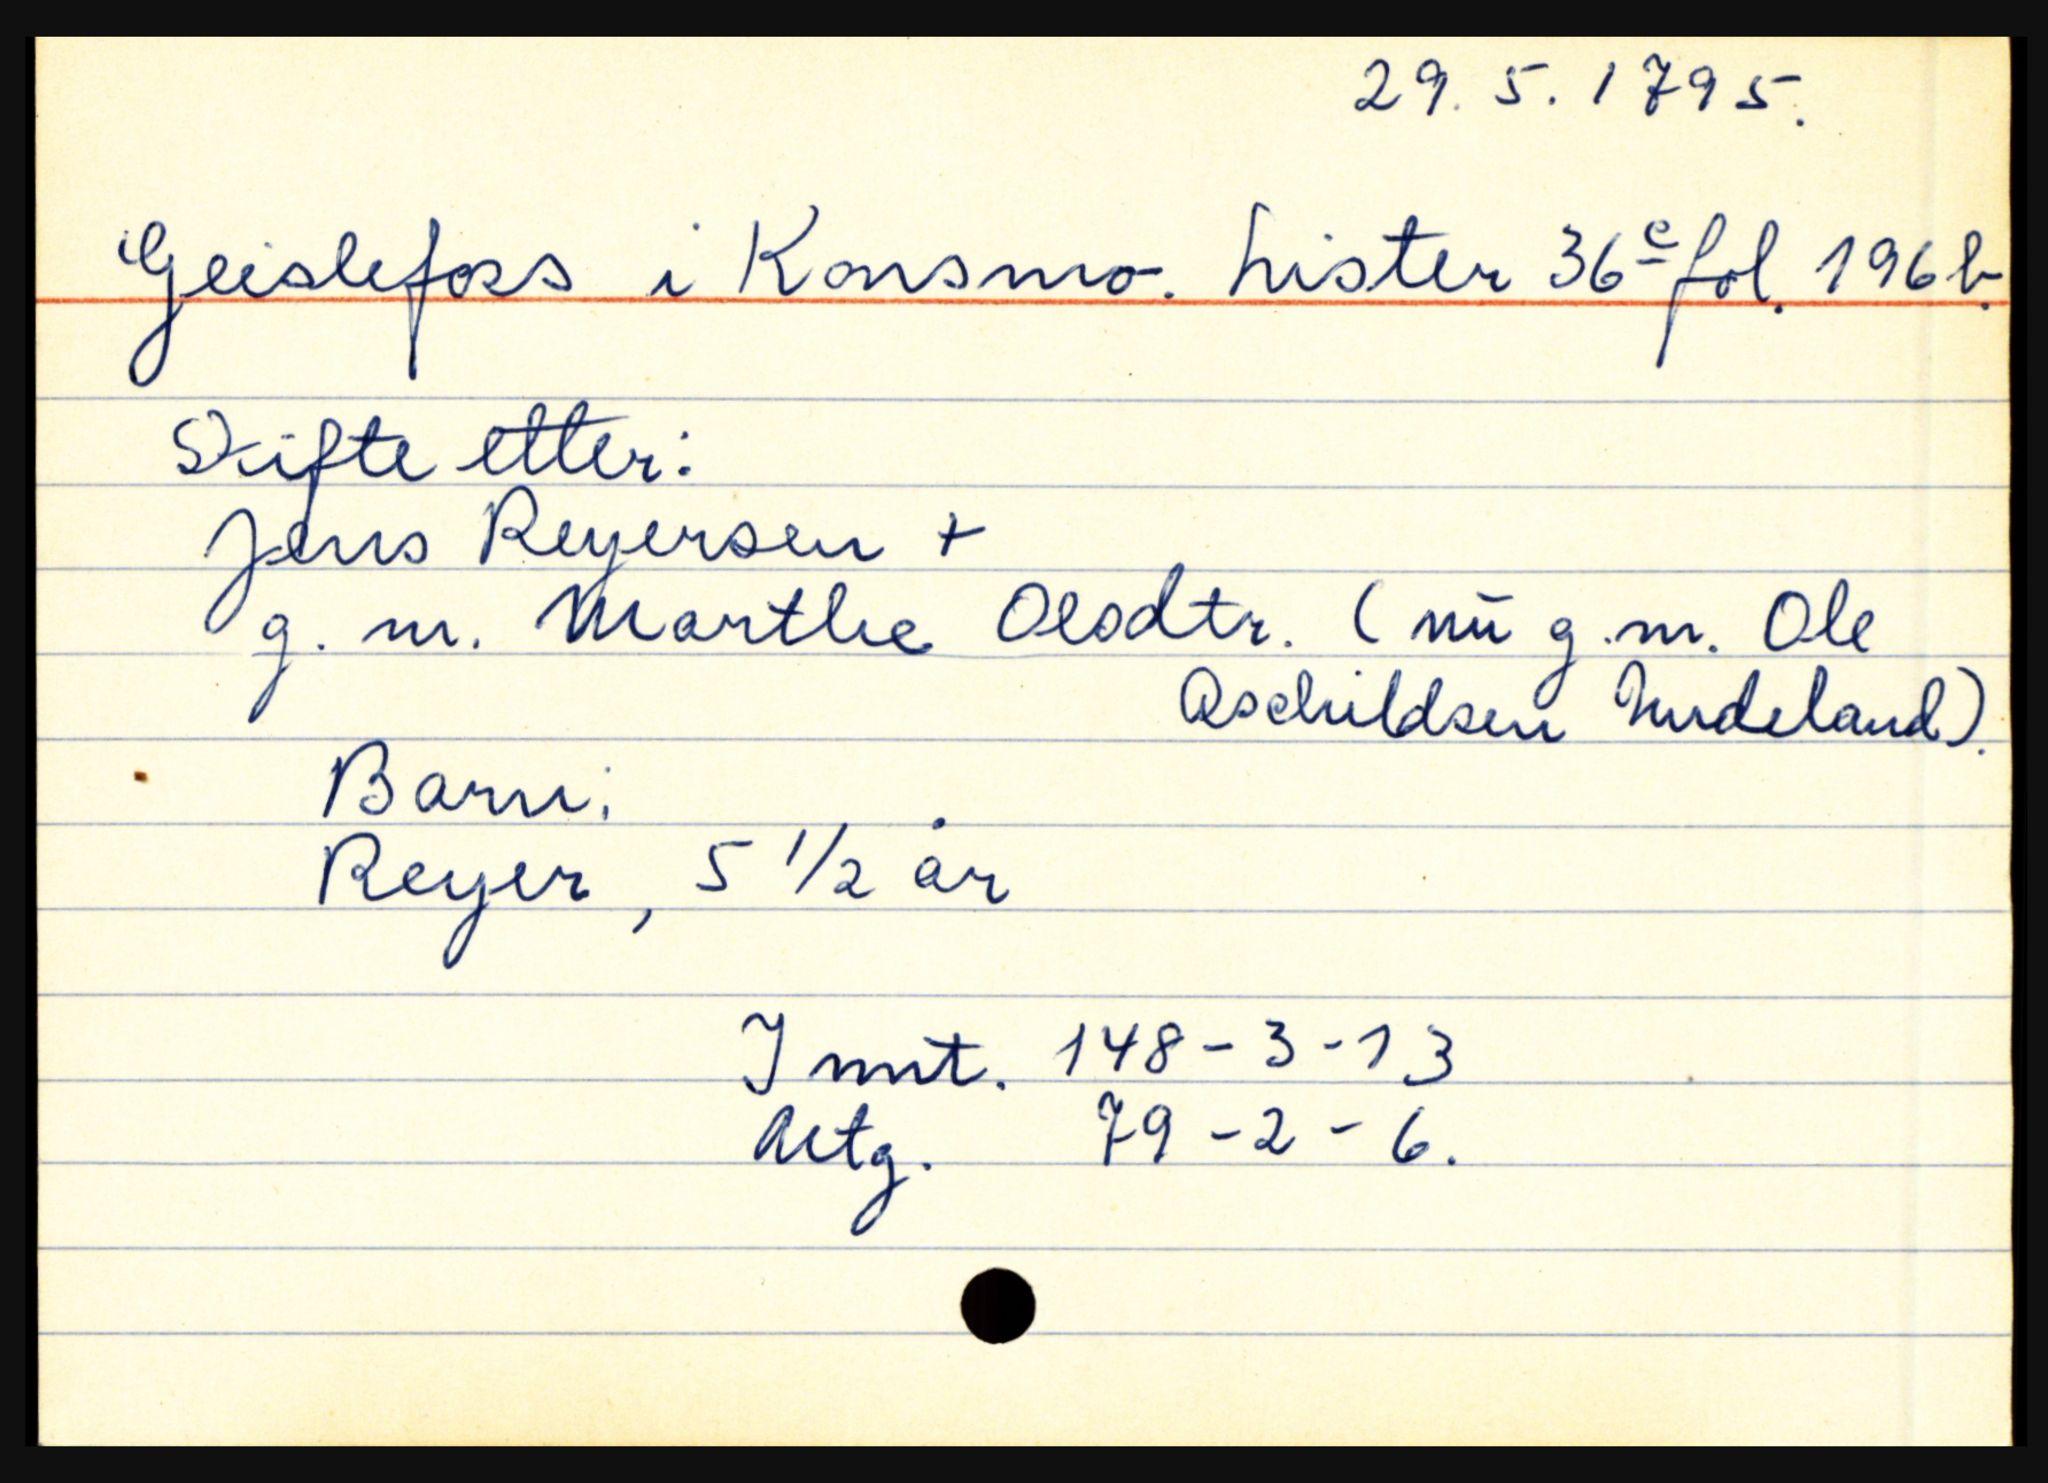 29. 5. 1795.
Geislefoss i Konsmo. Lister 36ᵉ fol. 196 b.
Skifte etter:
Jens Reyersen +
g. m. Marthe Olsdtr. ( nū g. m. Ole
Aschildsen Indeland).
Barn:
Reyer, 5 1/2 år
Innt. 148 - 3 - 13
Utg. 79 - 2 - 6.